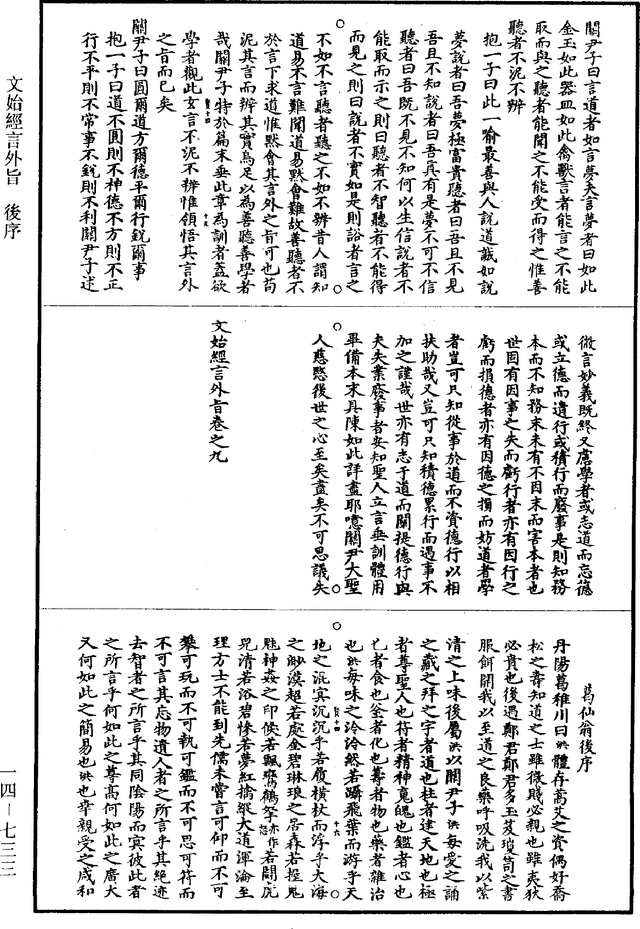 關尹子曰言道者如言夢夫言夢者曰如此
金玉如此器皿如此禽獸言者能言之不能
取而與之聽者能聞之不能受而得之惟善
聽者不泥不辨
抱一子曰此一喻最善與人說道誠如說
夢說者曰吾夢極富貴聽者曰吾且不見
吾且不知說者曰吾真有是夢不可不信
聽者曰吾既不見不知何以生信說者不
能取而示之則曰聽者不智聽者不能得
而見之則曰說者不實如是則說者言之
不如不言聽者聽之不如不辨昔人謂知
道易不言難聞道易默會難故善聽者不
於言下求道惟默會其言外之旨可也苟
泥其言而辨其實烏足以為善聽善學者
哉關尹子特於篇末垂此章為訓者蓋欲
學者觀此玄言不泥不辨惟領悟其言外
之旨而已矣
關尹子曰圓爾道方爾德平爾行銳爾事
抱一子曰道不圓則不神德不方則不正
行不平則不常事不銳則不利關尹子述
微言妙義既終又慮學者或志道而忘德
或立德而遺行或積行而廢事是則知務
本而不知務末未有不因末而害本者也
世固有因事之失而虧行者亦有因行之
虧而損德者亦有因德之損而妨道者學
者豈可只知從事於道而不資德行以相
扶助哉又豈可只知積德累行而遇事不
加之謹哉世亦有志于道而闕提德行與
夫失業廢事者安知聖人立言垂訓體用
畢備本末具陳如此詳盡耶噫關尹大聖
人慈愍後世之心至矣盡矣不可思議矣
文始經言外旨卷之九
葛仙翁後序
丹陽葛稚川曰洪體存蒿艾之資偶好喬
松之壽知道之士雖微賤必親也雖夷狄
必貴也後遇鄭君鄭君多玉芨瓊笥之書
服餌開我以至道之良藥呼吸洗我以紫
清之上味後屬洪以關尹子洪每愛之誦
之藏之拜之宇者道也柱者建天地也極
者尊聖人也符者精神魂魄也鑑者心也
匕者食也釜者化也籌者物也藥者雜治
也洪每味之泠泠然若躡飛葉而游乎天
地之混冥沉沉乎若履橫杖而浮乎大海
之渺漠超若處金碧琳琅之居森若握鬼
魅神姦之印倏若飄鸞鶴怒若鬬虎
兕清若浴碧慘若夢紅擒縱大道渾淪至
理方士不能到先儒未嘗言可仰而不可
攀可玩而不可執可鑑而不可思可符而
不可言其忘物遺人者之所言乎其絕迹
去智者之所言乎其同陰陽而冥彼此者
之所言乎何如此之尊高何如此之廣大
又何如此之簡易也洪也幸親受之咸和
文始經言外旨 後序
一四—七三三